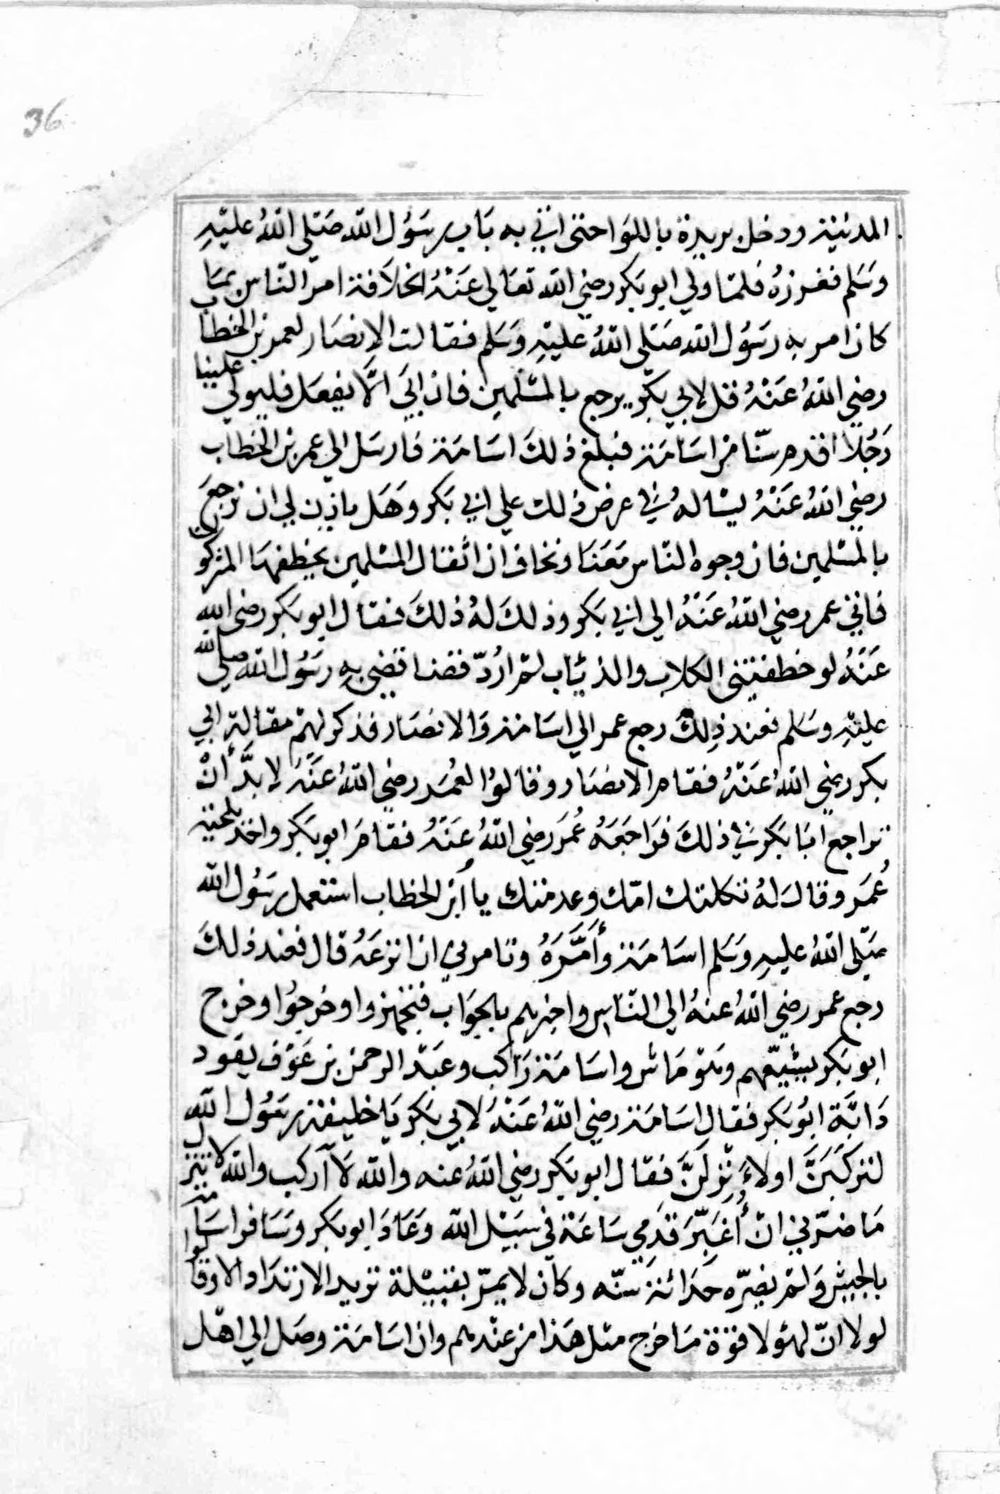 36
المدينة ودخل بريدة باللوا حتى اتى به باب رسول الله صَلّى اللهُ عليْهِ
وَسَلم فغرزهُ فلمّا ولي ابو بَكر رضي الله تعَالي عَنْهُ الخلافة امر النّاس بمَا
كان امر به رسَوُل الله صَلّى اللهُ عليْهِ وَسَلم فقالت الانصَار لعمر بن الخطاب
رضي اللهُ عَنْهُ قل لابي بكر يرجع بالمسْلمين فان ابَي الَّا يفعَل فليولي علينا
رَجُلا اقدم سنّا من اسَامَة فبلغ ذلكَ اسَامَة فارسَل الي عمر بن الخطاب
رضي اللهُ عَنْهُ يسَالهُ في عرض ذلك علي ابي بَكر وَهَل ياذن لي ان نرجعَ
بالمسْلمين فان وجوه النّاس مَعَنَا ونخاف ان اثقال المسْلمين يخطفهَا المشركون
فاتي عمر رضي اللهُ عَنْهُ الي ابي بَكر وذ لكَ لهُ ذلكَ فقال ابو بَكر رضي الله
عَنْهُ لو خطفتني الكلاب والذئاب لمْ ارُدّ قضا قضى به رسَوُل الله صلى الله
عليْهِ وسَلم فعند ذلِكَ رجع عمر الي اسَامَة وَالانصَار فذكر لهمْ مقالة ابي
بكر رضي اللهُ عَنْهُ فقام الانصَار وقالوُا لعُمَر رضي اللهُ عَنْهُ لابدَّ أنْ
تراجع ابَا بَكر في ذلكَ فرَاجَعَهُ عُمَر رضي اللهُ عَنْهُ فقامَ ابو بَكر واخذ بلحية
عُمَر وقالَ لهُ ثكلتك امّك وعدمتك يا أبْن الخطاب استعمل رسَوُل الله
صَلّى اللهُ عليهِ وَسَلم اسَامَة وأمَّرَهُ وتامرني ان انزعَهُ قال فعند ذلكَ
رجع عمر رضي اللهُ عنهُ الي النّاس واخبرهم بالجوَاب فتجهزوا وخرجوُا وخرج
ابو بَكر يشيّعهم وهو مَاش واسَامَة رَاكب وعَبْد الرحمن بن عَوْف يقود
دَابَّة ابُو بَكر فقال اسَامَة رضي اللهُ عَنْهُ لابي بَكر يَا خليفة رسَوُل الله
لتركَبَنَّ اولاءَنْزلَنَّ فقال ابو بَكر رضي اللهُ عنه والله لَا اركب والله لا تنزل
مَا ضرّني انْ أُغَبّرَ قدَمي سَاعَة في سَبيْل الله وَعَادَ ابو بَكر وَسَافر اسَامَة
بالجيش وَلمْ يضرّه حَدَاثة سنّه وكان لا يمرّ بقبيْلة تريد الارتدَاد الا وقالوُا
لولا انّ لهؤلا قوّة مَا خرج مثل هَذا من عندهم وان اسَامَة وصَل الي اهْل